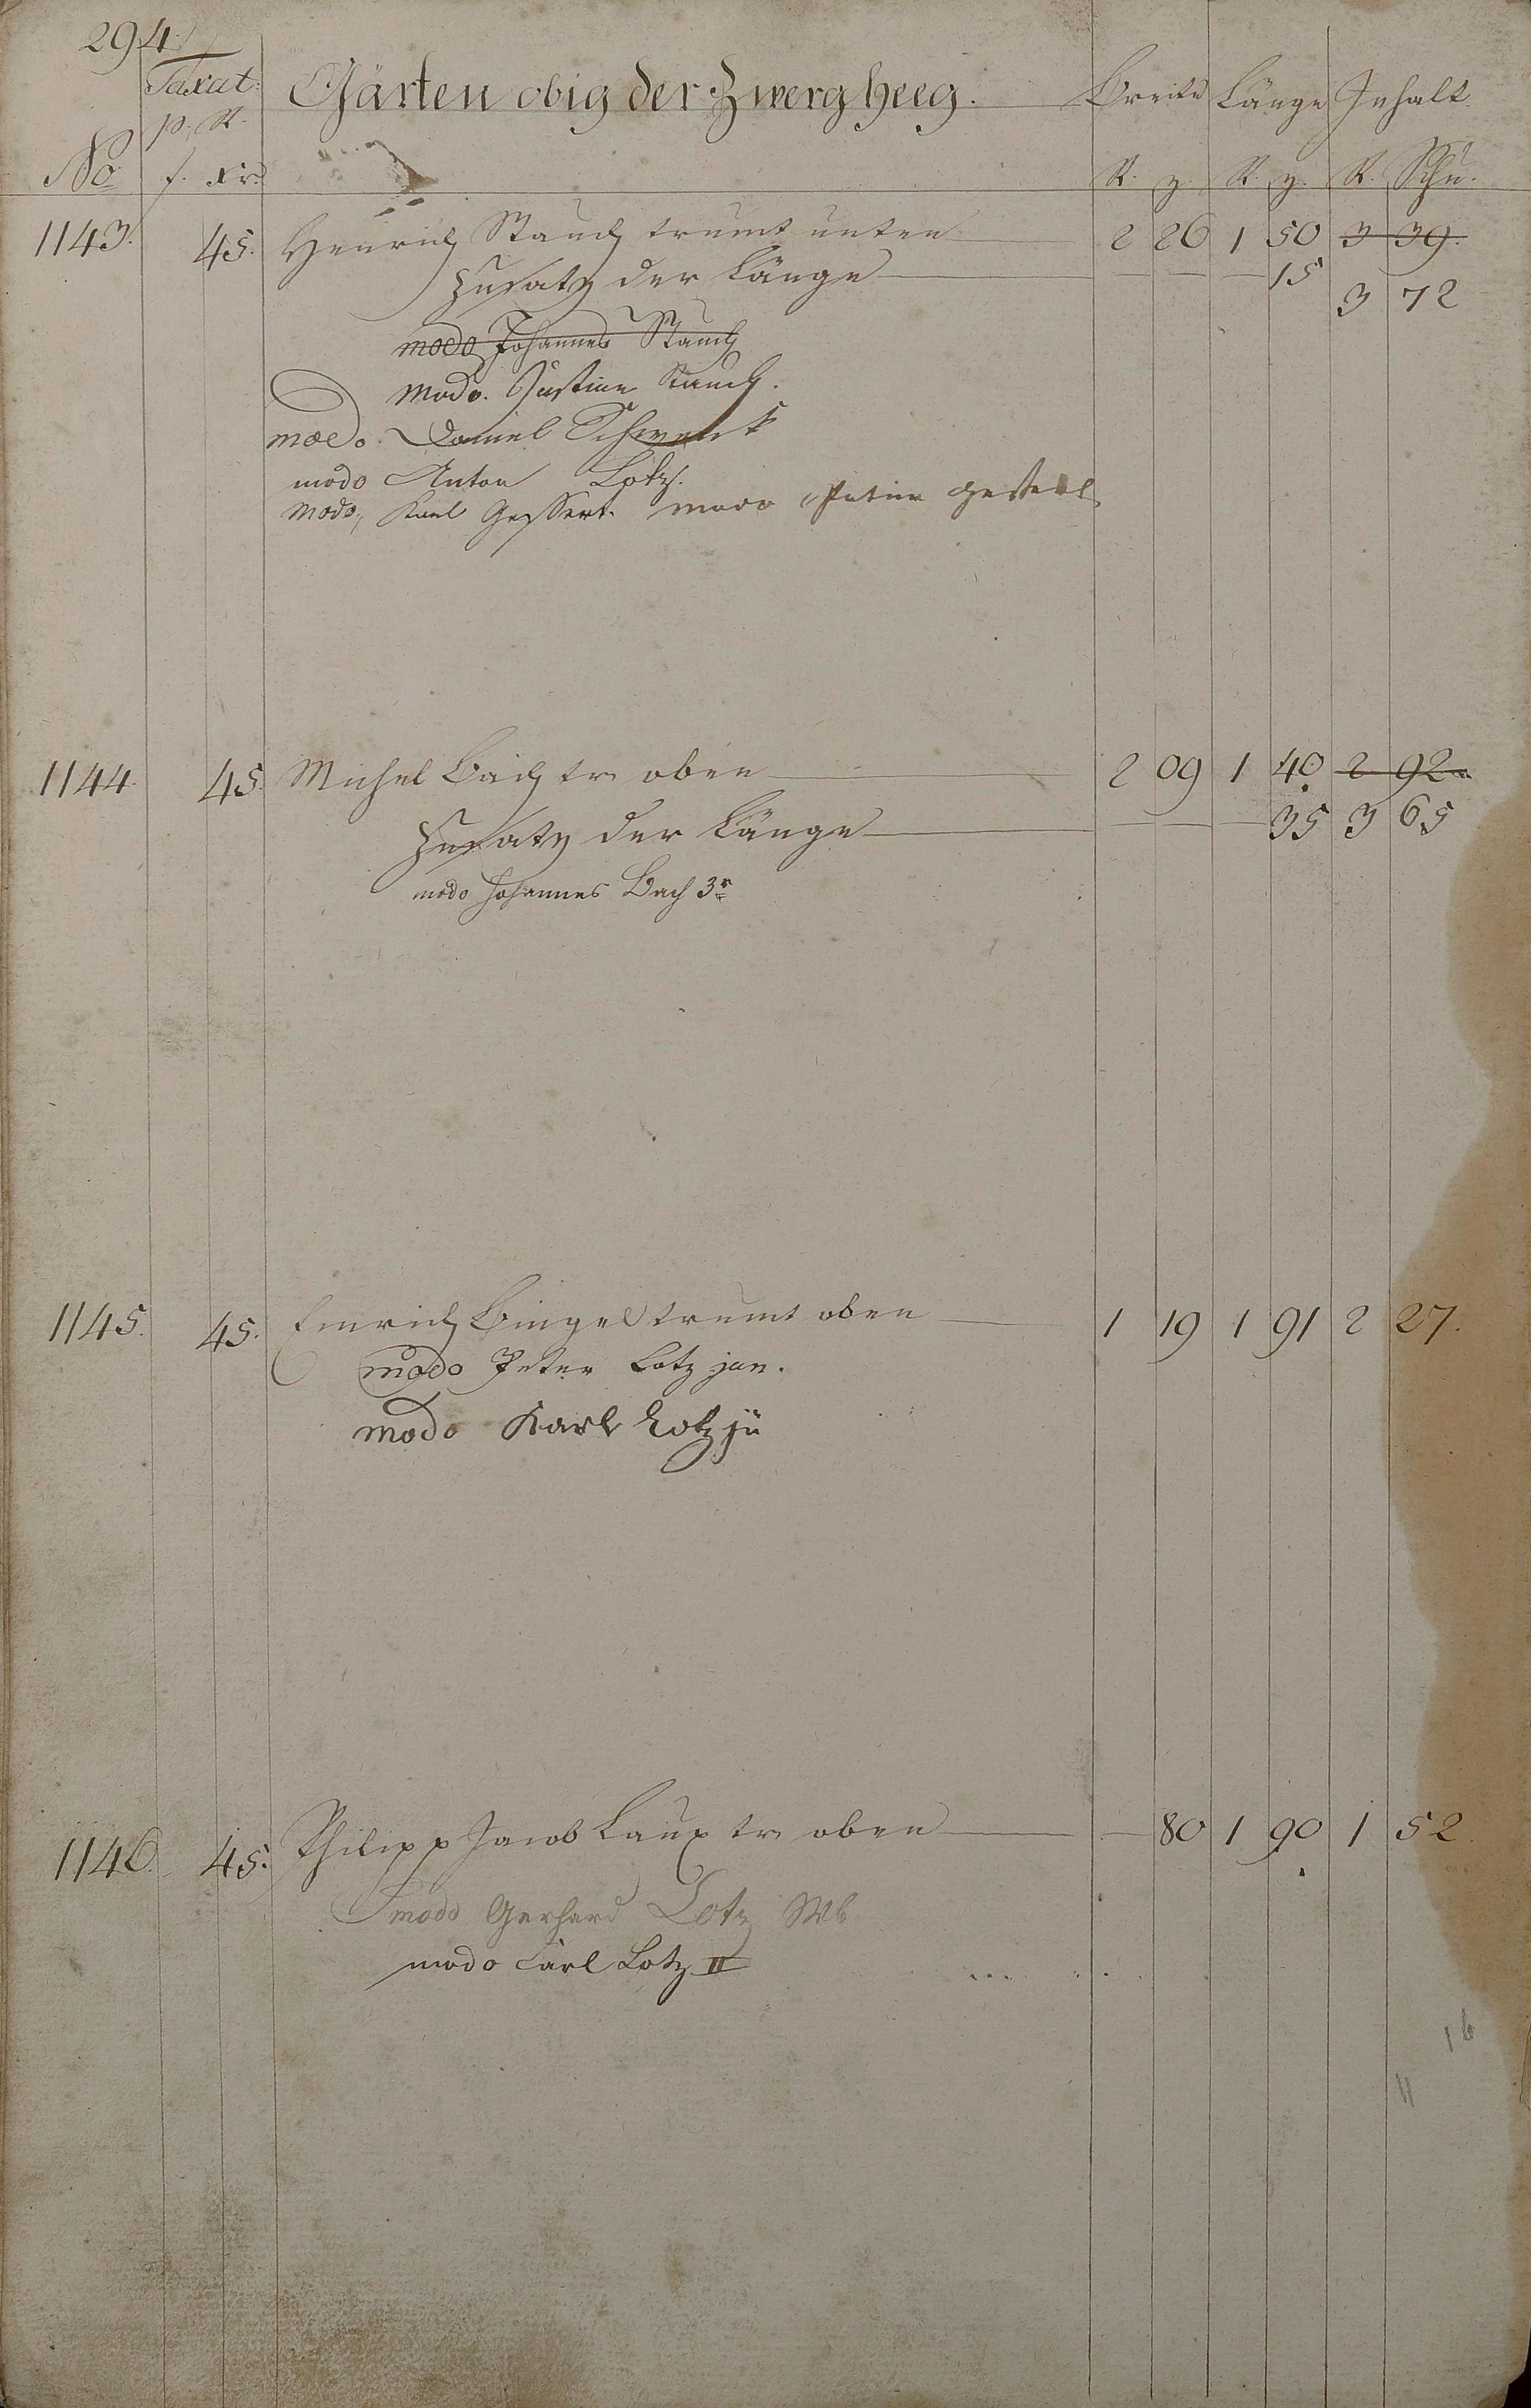 294
Taxat: Gärten obig der Zwergheeg. Breite Länge Inhalt
p. R.
No f. xr. R. z. R. z. R. Schu.
1143. 45. Henrich Stauch trumt unten 2 26 1 50 3 39.
Zusatz der Länge 15 3 72
modo Johannes Stauch
modo. Justine Stauch.
modo. Daniel Schwenk
modo Anton Lotz.
modo, Karl Gessert. modo Peter
1144. 45. Michel Bach tr. oben 2 09 1 40 2 92
Zusatz der Länge 35 3 65
modo Johannes Bach 3r
1145. 45. Emrich Bingel trumt oben 1 19 1 91 2 27.
modo Peter Lotz jun.
modo Karl Lotz ju
1146. 45. Philipp Jacob Laux tr. oben 80 1 90 1 52
modo Gerhard Lotz Wb
modo Carl Lotz II
16
11